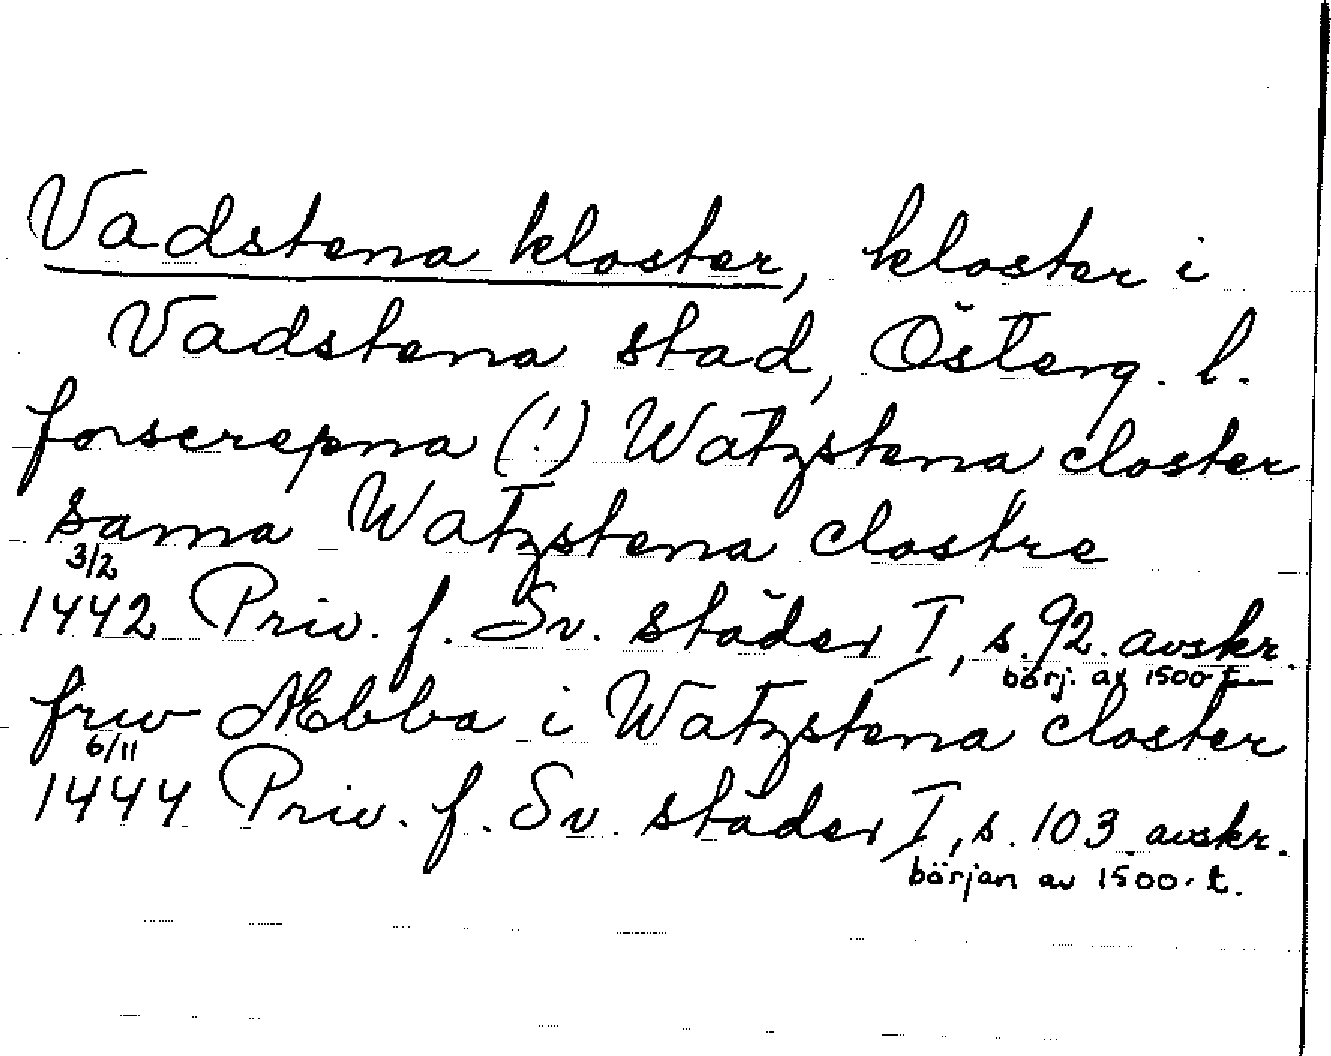 Vadstena kloster, kloster i
Vadstena stad, Österg. l.
forscrepna (!) Watzstena closter
samma Watzstena clostre
3/2
1442 Priv. f. Sv. städer I, s. 92. avskr.
börj. av 1500-t.
frw Æbba i Watzstena closter
6/11
1444 Priv. f. Sv. städer I, s. 103 avskr.
början av 1500-t.